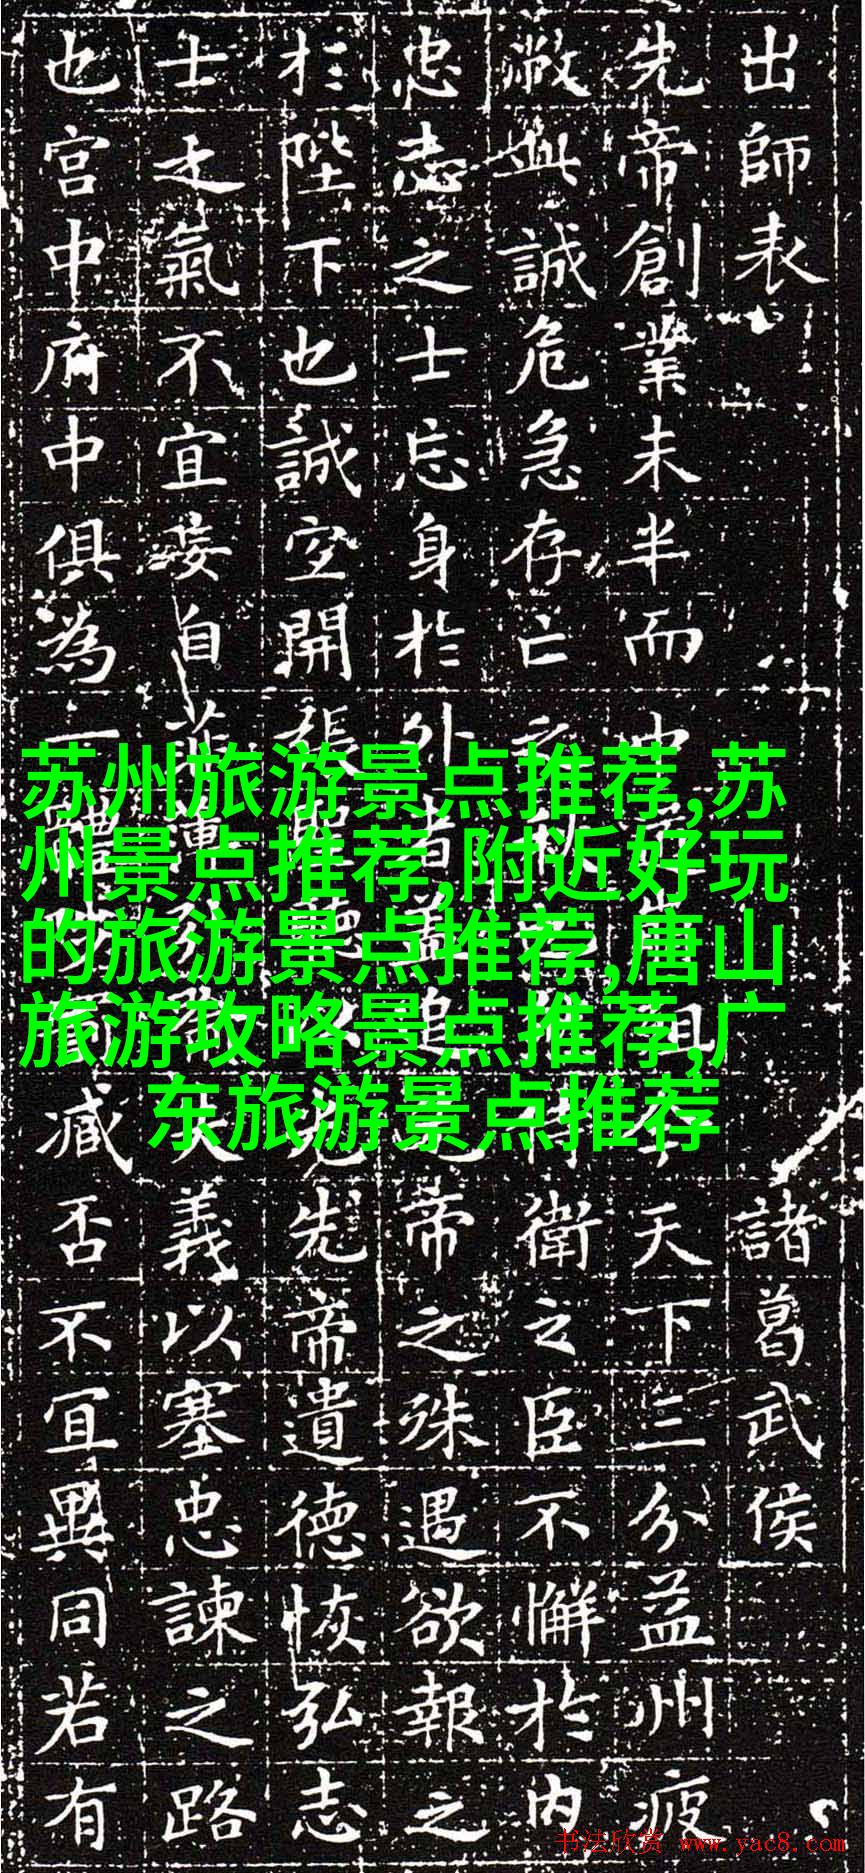 出師表 諸葛武侯
先帝創業未半而中殂今天下三分益州疲
敝此誠危急存亡之秋侍衛之臣不懈於內
忠志之士忘身於外者蓋追先帝之殊遇欲報之
於陛下也誠宜開張聖聽以光先帝遺德恢弘志
士之氣不宜妄自菲薄失義以塞忠諫之路
也宮中府中俱為一體罰臧否不宜異同若有
苏州旅游景点推荐,苏
州景点推荐,附近好玩
的旅游景点推荐,唐山
旅游攻略景点推荐,广
东旅游景点推荐
书法欣赏 www.yac8.com